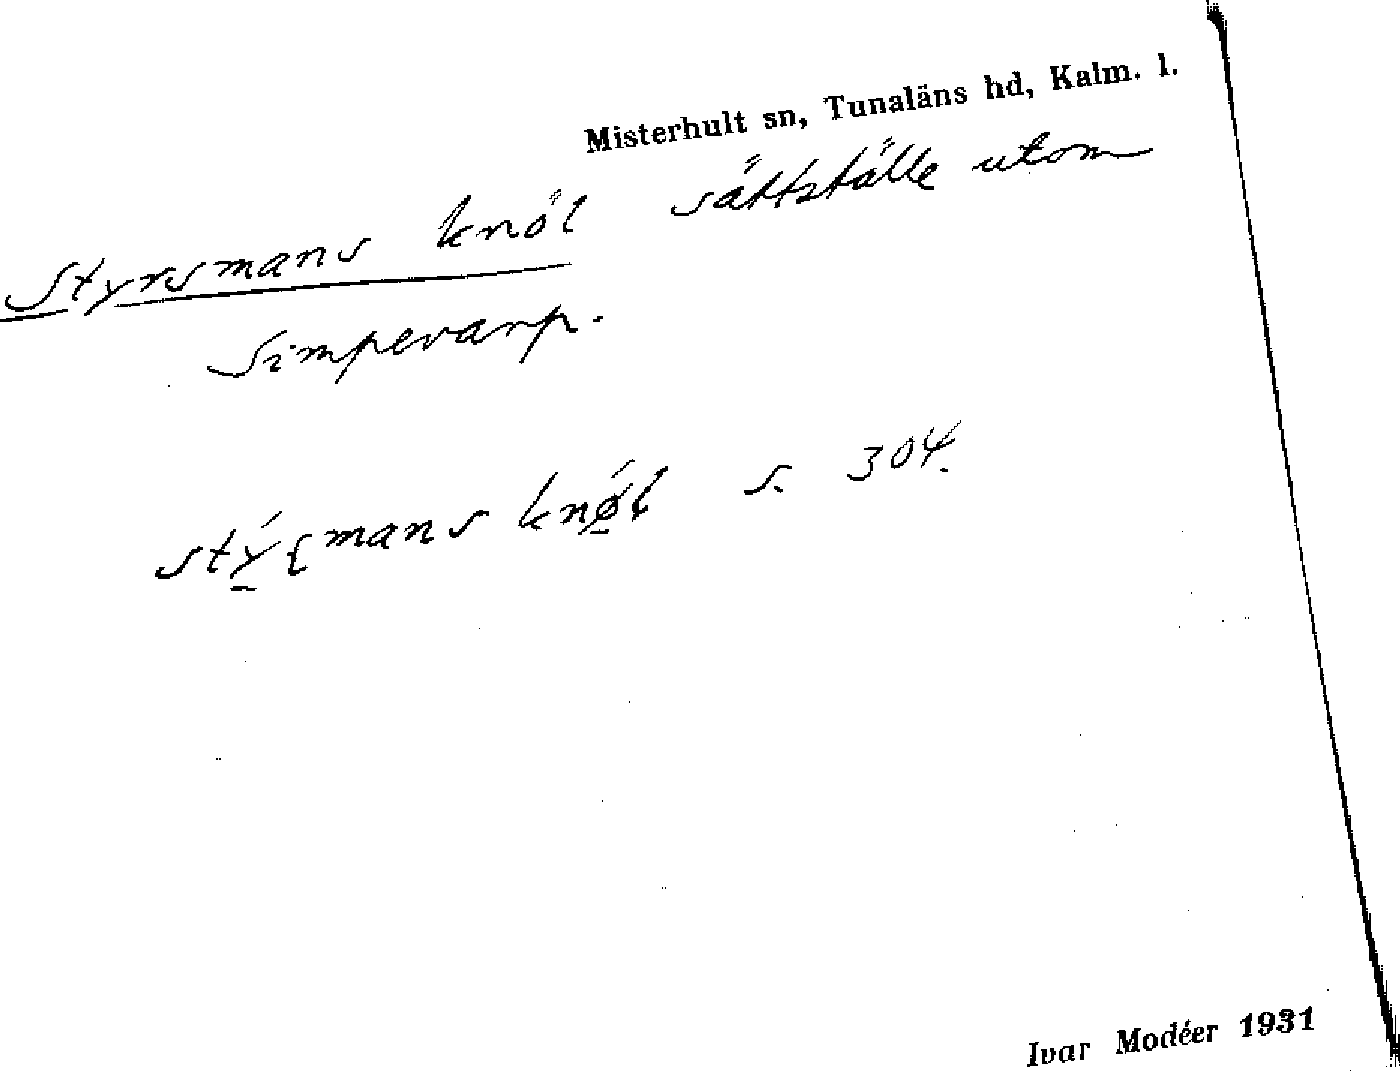 Misterhult sn, Tunaläns hd, Kalm. l.
Styrsmans knöl sättställe utom
Simpevarp.
stý̱ʂmans knǿ̱l s. 304.
Ivar Modéer 1931